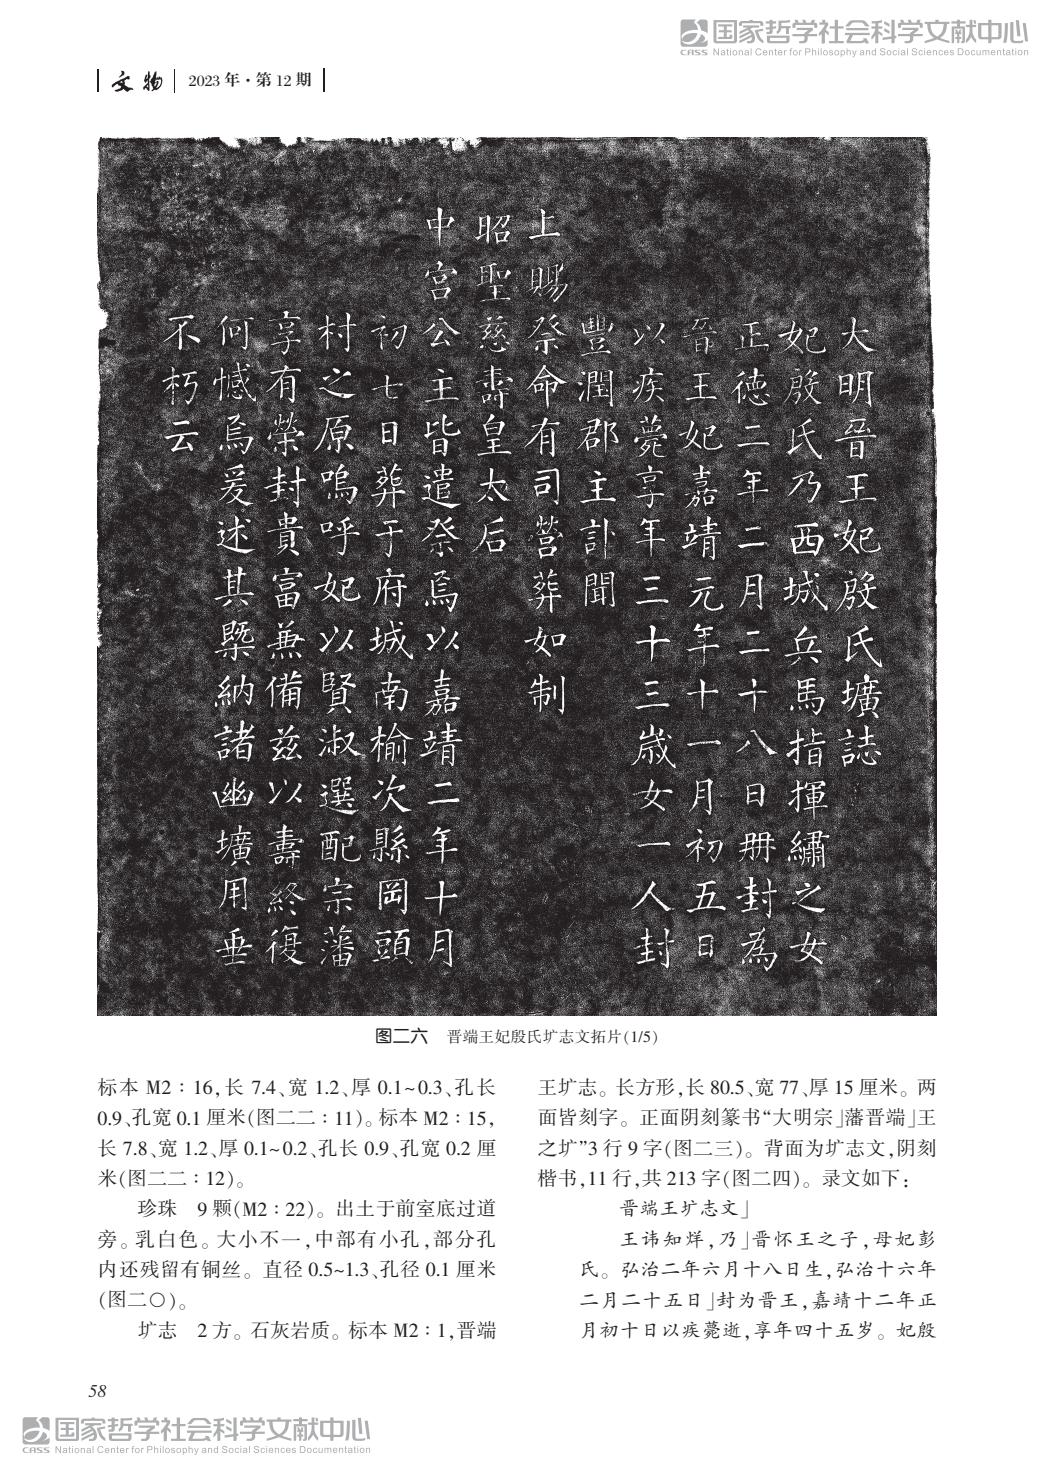 国家哲学社会科学文献中心
CASS National Center for Philosophy and Social Sciences Documentation
文物 2023 年·第 12 期
大明晉王妃殷氏壙誌
妃殷氏乃西城兵馬指揮繡之女
正德二年二月二十八日冊封為
晉王妃嘉靖元年十一月初五日
以疾薨享年三十三歲女一人封
豐潤郡主訃聞
上賜祭命有司營葬如制
昭聖慈壽皇太后
中宮公主皆遣祭焉以嘉靖二年十月
初七日葬于府城南榆次縣岡頭
村之原嗚呼妃以賢淑選配宗藩
享有榮封貴富兼備茲以壽終復
何憾焉爰述其槩納諸幽壙用垂
不朽云
图二六 晋端王妃殷氏圹志文拓片(1/5)
标本 M2∶16,长 7.4、宽 1.2、厚 0.1~0.3、孔长
0.9、孔宽 0.1 厘米(图二二∶11)。标本 M2∶15,
长 7.8、宽 1.2、厚 0.1~0.2、孔长 0.9、孔宽 0.2 厘
米(图二二∶12)。
珍珠 9 颗(M2∶22)。出土于前室底过道
旁。乳白色。大小不一,中部有小孔,部分孔
内还残留有铜丝。直径 0.5~1.3、孔径 0.1 厘米
(图二〇)。
圹志 2 方。石灰岩质。标本 M2∶1,晋端
王圹志。长方形,长 80.5、宽 77、厚 15 厘米。两
面皆刻字。正面阴刻篆书“大明宗」藩晋端」王
之圹”3 行 9 字(图二三)。背面为圹志文,阴刻
楷书,11 行,共 213 字(图二四)。录文如下:
晋端王圹志文」
王讳知烊,乃」晋怀王之子,母妃彭
氏。弘治二年六月十八日生,弘治十六年
二月二十五日」封为晋王,嘉靖十二年正
月初十日以疾薨逝,享年四十五岁。妃殷
58
国家哲学社会科学文献中心
CASS National Center for Philosophy and Social Sciences Documentation